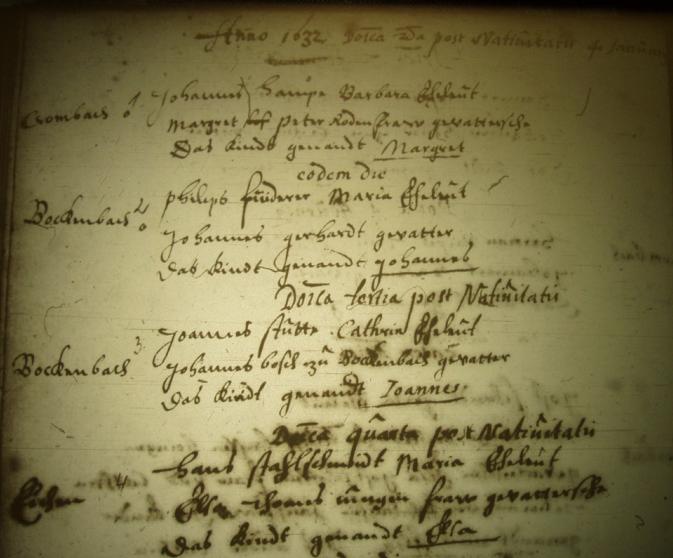 Anno 1632 Doīca 2da post Nativitatis
Crombach 1 Johannes Hampe Barbara Eheleut
Margret Peter Roden fraw gevattersche
Das kindt genandt Margret
eodem die
Bockenbach 2 philips Maria Eheleut
Johannes gerhardt gevatter
das kindt genandt Johannes
Doīca tertia post Nativitatis
Joannes stutte Cathrin Eheleut
Bockenbach 3 Johannes bosch zu Bockenbach gevatter
das kindt genandt Joannes
Doīca quarta post Nativitatis
Hans stahlschmidt Maria Eheleut
Eichen 4 Elsa thomes jungen fraw gevattersche
das kindt genandt Elsa